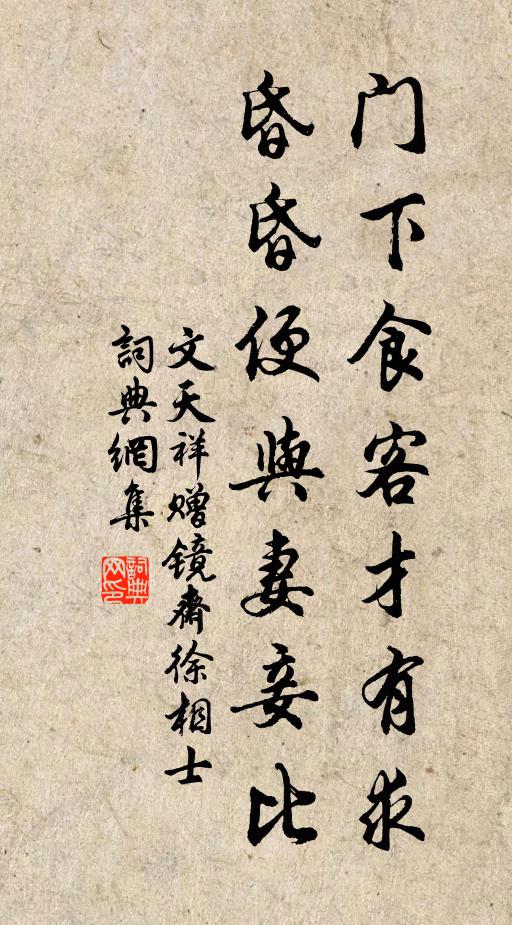 门下食客才有求
昏昏便與妻妾比
文天祥赠镜齋徐相士
詞典網集
詞典网印